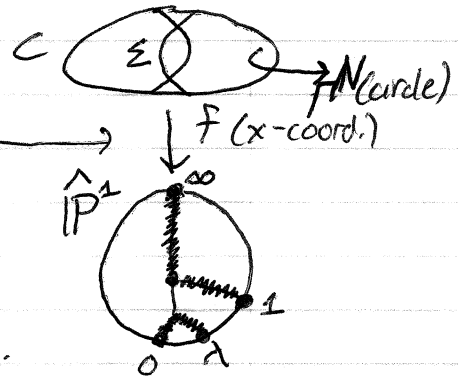 C Σ N (circle)
f (x-coord.)
P̂¹ ∞
1
0 λ